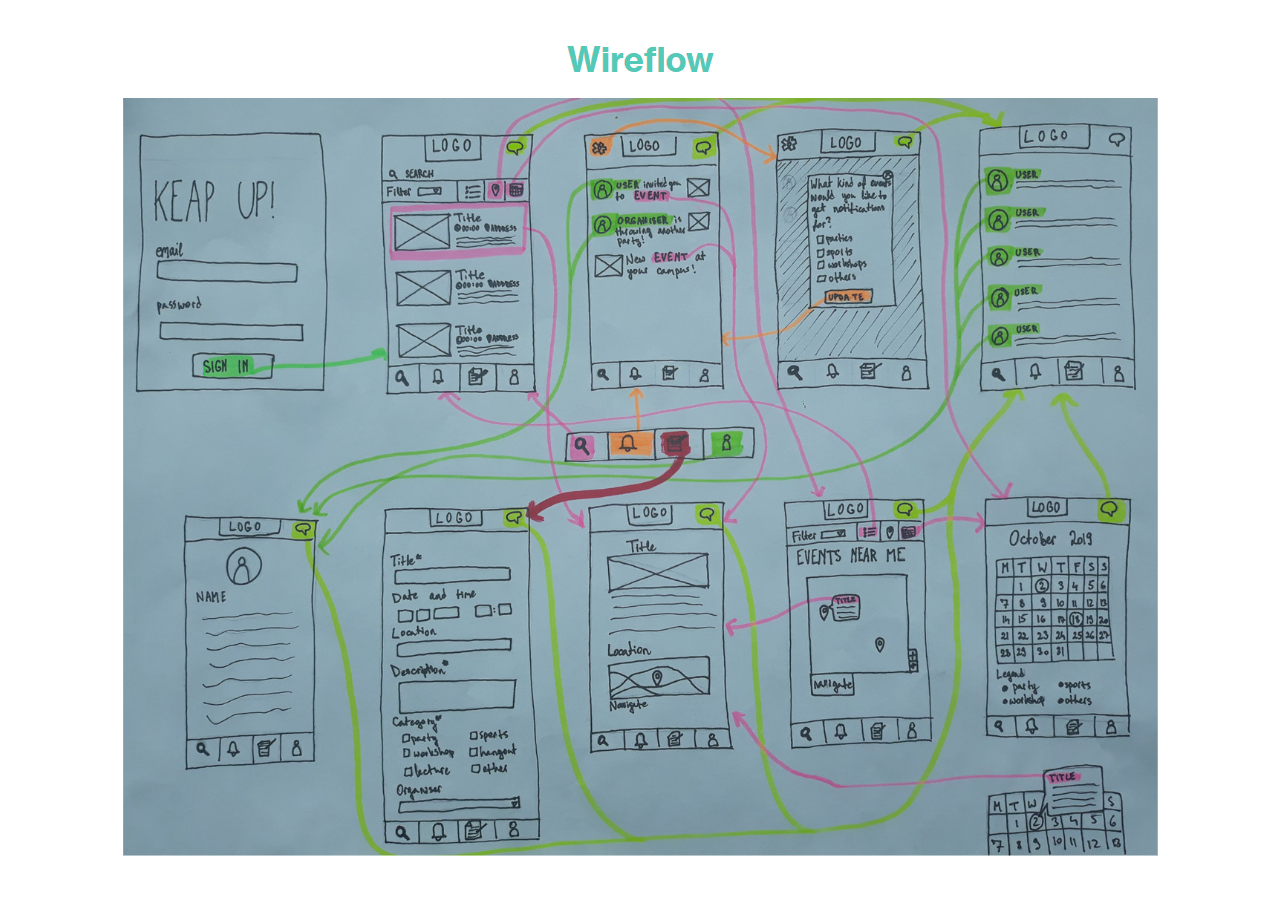 Wireflow
KEAP UP!
email
password
SIGN IN
LOGO
SEARCH
Filter
Title
@00:00 ADDRESS
Title
@00:00 ADDRESS
Title
@00:00 ADDRESS
LOGO
USER invited you
to EVENT
ORGANISER is
throwing another
party!
New EVENT at
your campus!
LOGO
What kind of events
would you like to
get notifications
for?
parties
sports
workshops
others
UPDATE
LOGO
USER
USER
USER
USER
USER
LOGO
NAME
LOGO
Title*
Date and time
:
Location
Description*
Category*
party
sports
workshop
hangout
lecture
other
Organiser
LOGO
Title
Location
Navigate
LOGO
Filter
EVENTS NEAR ME
TITLE
Navigate
LOGO
October 2019
M T W T F S S
1 2 3 4 5 6
7 8 9 10 11 12 13
14 15 16 17 18 19 20
21 22 23 24 25 26 27
28 29 30 31
Legend
party
sports
workshop
others
TITLE
M T W S
1 2 3 4 5 6
7 8 9 10 11 12 13